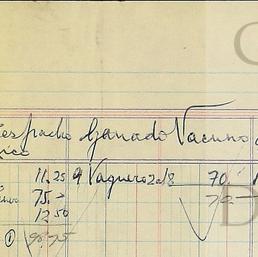 espacho Ganado Vacuno
xico
11.25 9 Vaquero 2a/8 70
75.-
12 50
① 98.75